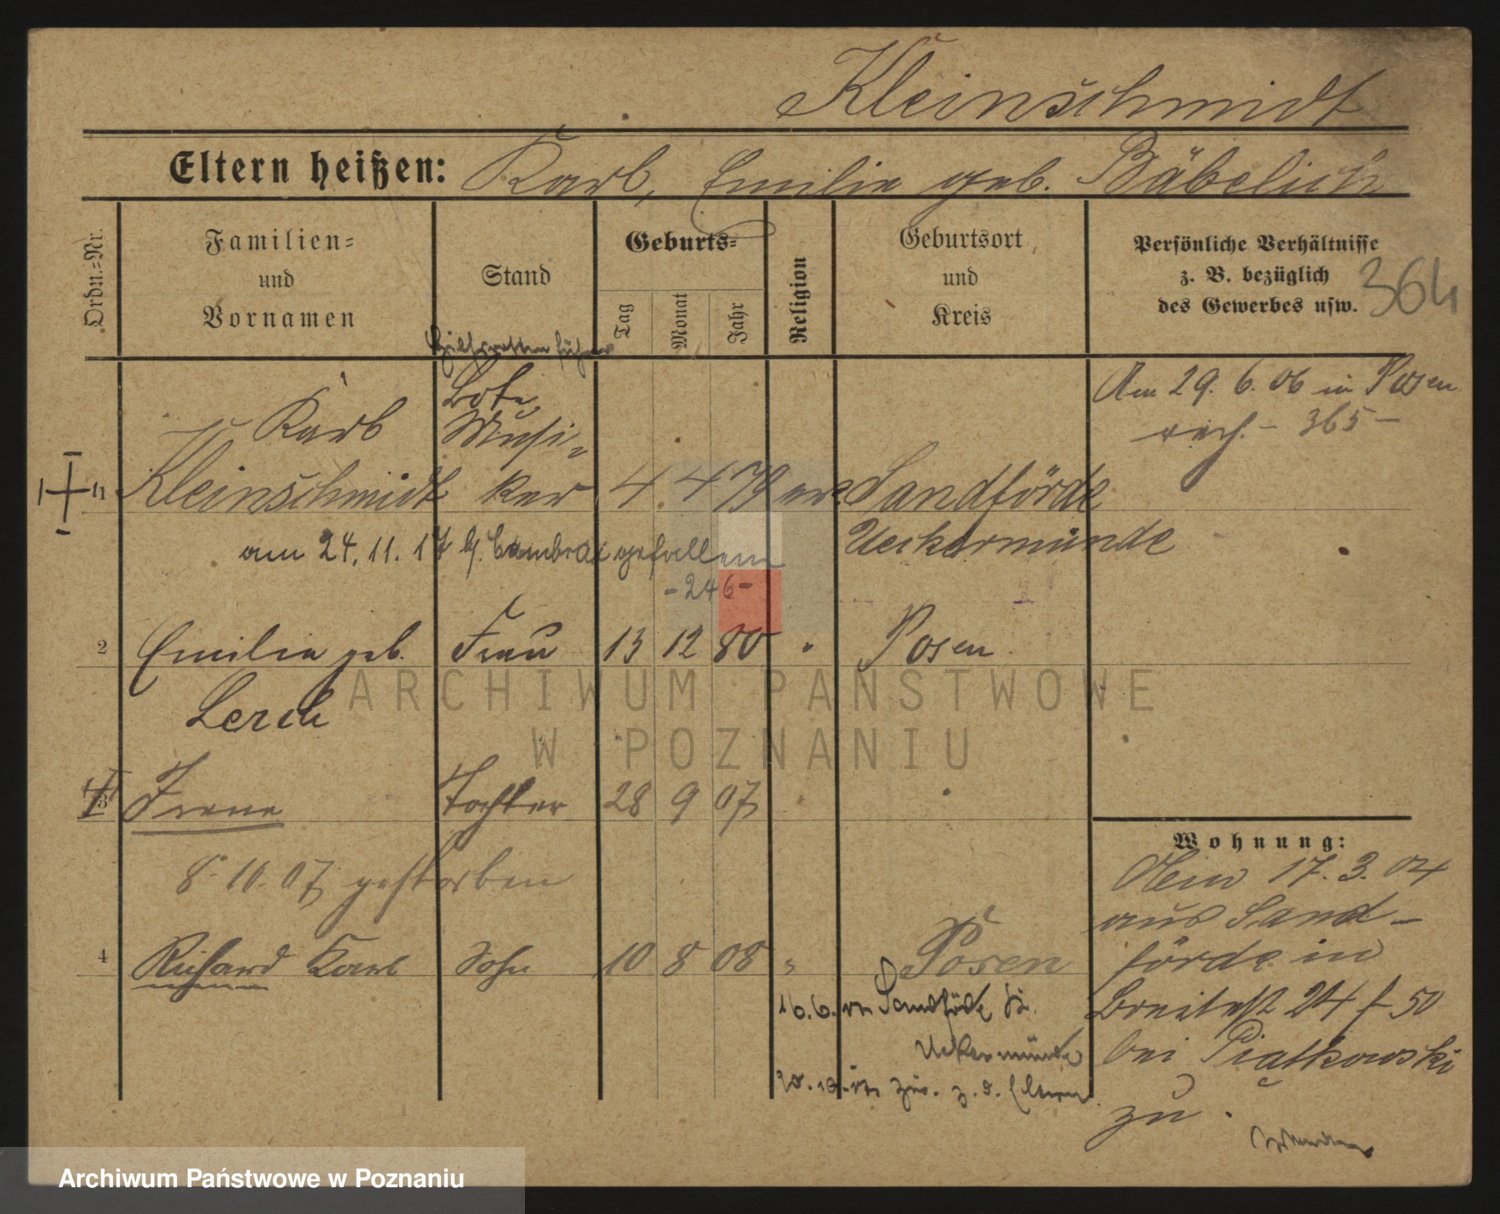 Kleinschmidt
Eltern heißen: Karl, Emilie geb. Bäbelich
Ordn.-Nr.
Familien-
und
Vornamen
Stand
Geburts-
Tag
Monat
Jahr
Religion
Geburtsort
und
Kreis
Persönliche Verhältnisse
z. B. bezüglich
des Gewerbes usw.
364
Bote
Am 29. 6. 06 in Posen
Karl
Musi-
- 365 -
1 Kleinschmidt ker 4 4 79 ev. Sandförde
am 24. 11. 17 b. Cambrai gefallen
Ueckermünde
-246-
2 Emilie geb. Frau 13 12 80 " Posen
Lerch
3 Irene Tochter 28 9 07 " "
8. 10. 07 gestorben
4 Richard Karl Sohn 10 8 08 " Posen
16. 6. Sandförde
Ueckermünde
z. d. Eltern
Wohnung:
17. 3. 04
aus Sand-
förde in
Breitestr 24 50
bei Piatkowski
zu.
ARCHIWUM PAŃSTWOWE
W POZNANIU
Archiwum Państwowe w Poznaniu